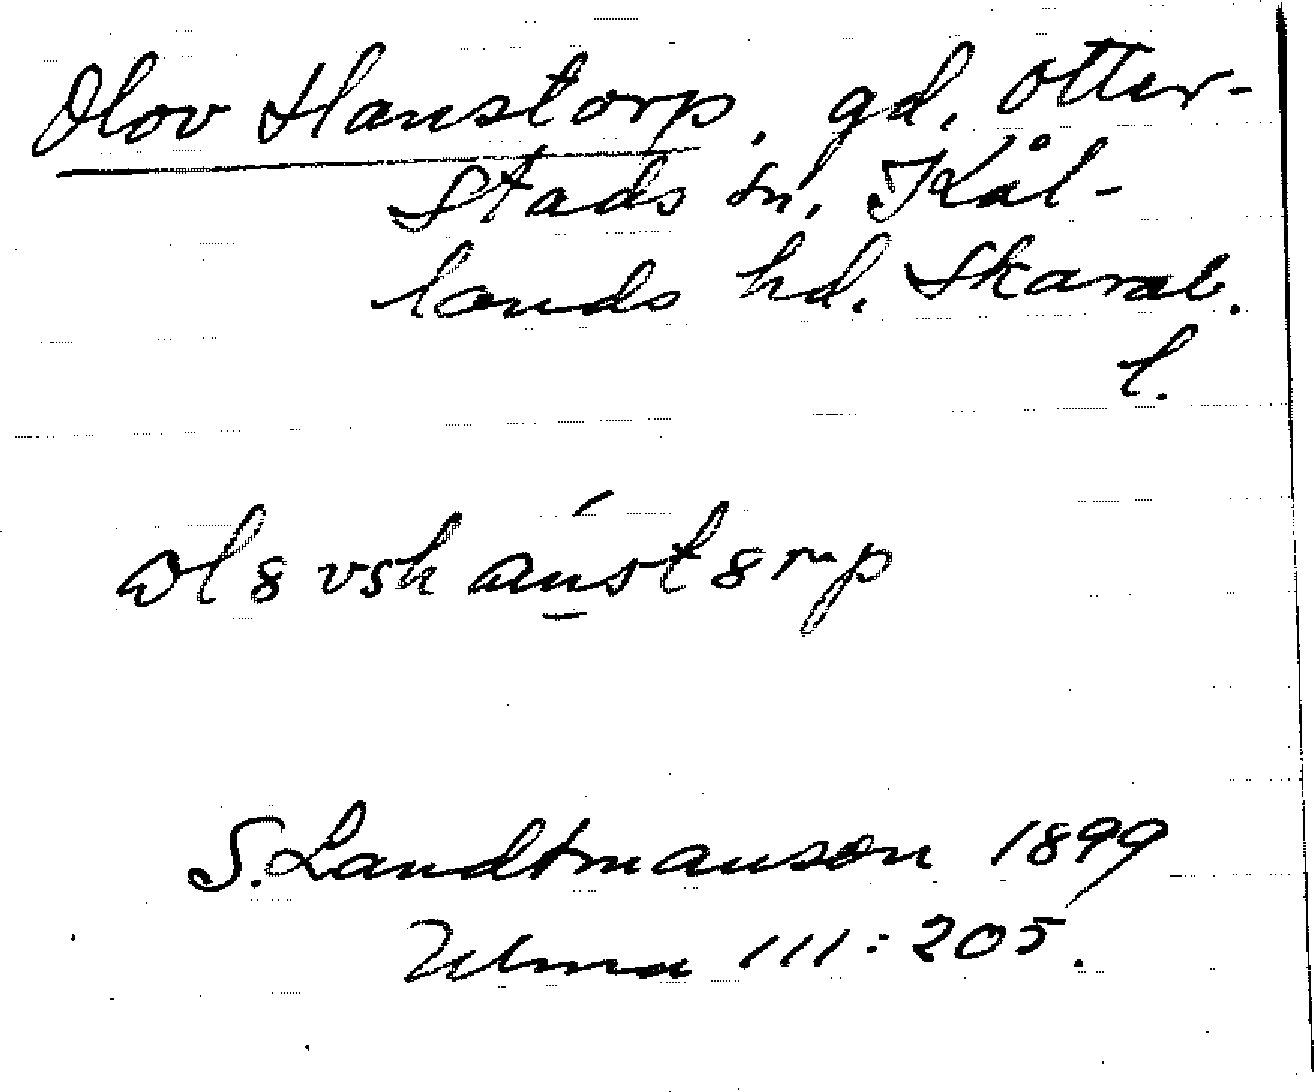 Olov Hanstorp, gd, Otter-
stads sn, Kål-
lands hd. Skarab.
l.
S. Landtmanson 1899
Ulma 111:205.